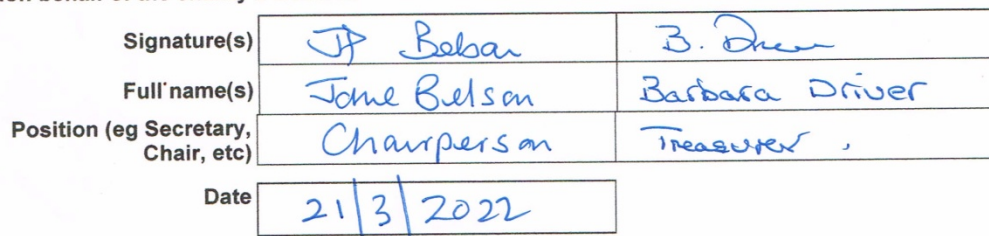 Signature(s) JP Belson B. Driver
Full name(s) Jane Belson Barbara Driver
Position (eg Secretary, Chairperson Treasurer
Chair, etc)
Date 21/3/2022